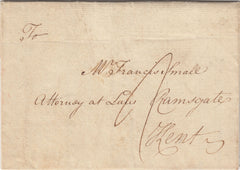 To
Mr Francis Small
Attorney at Law Ramsgate
Kent